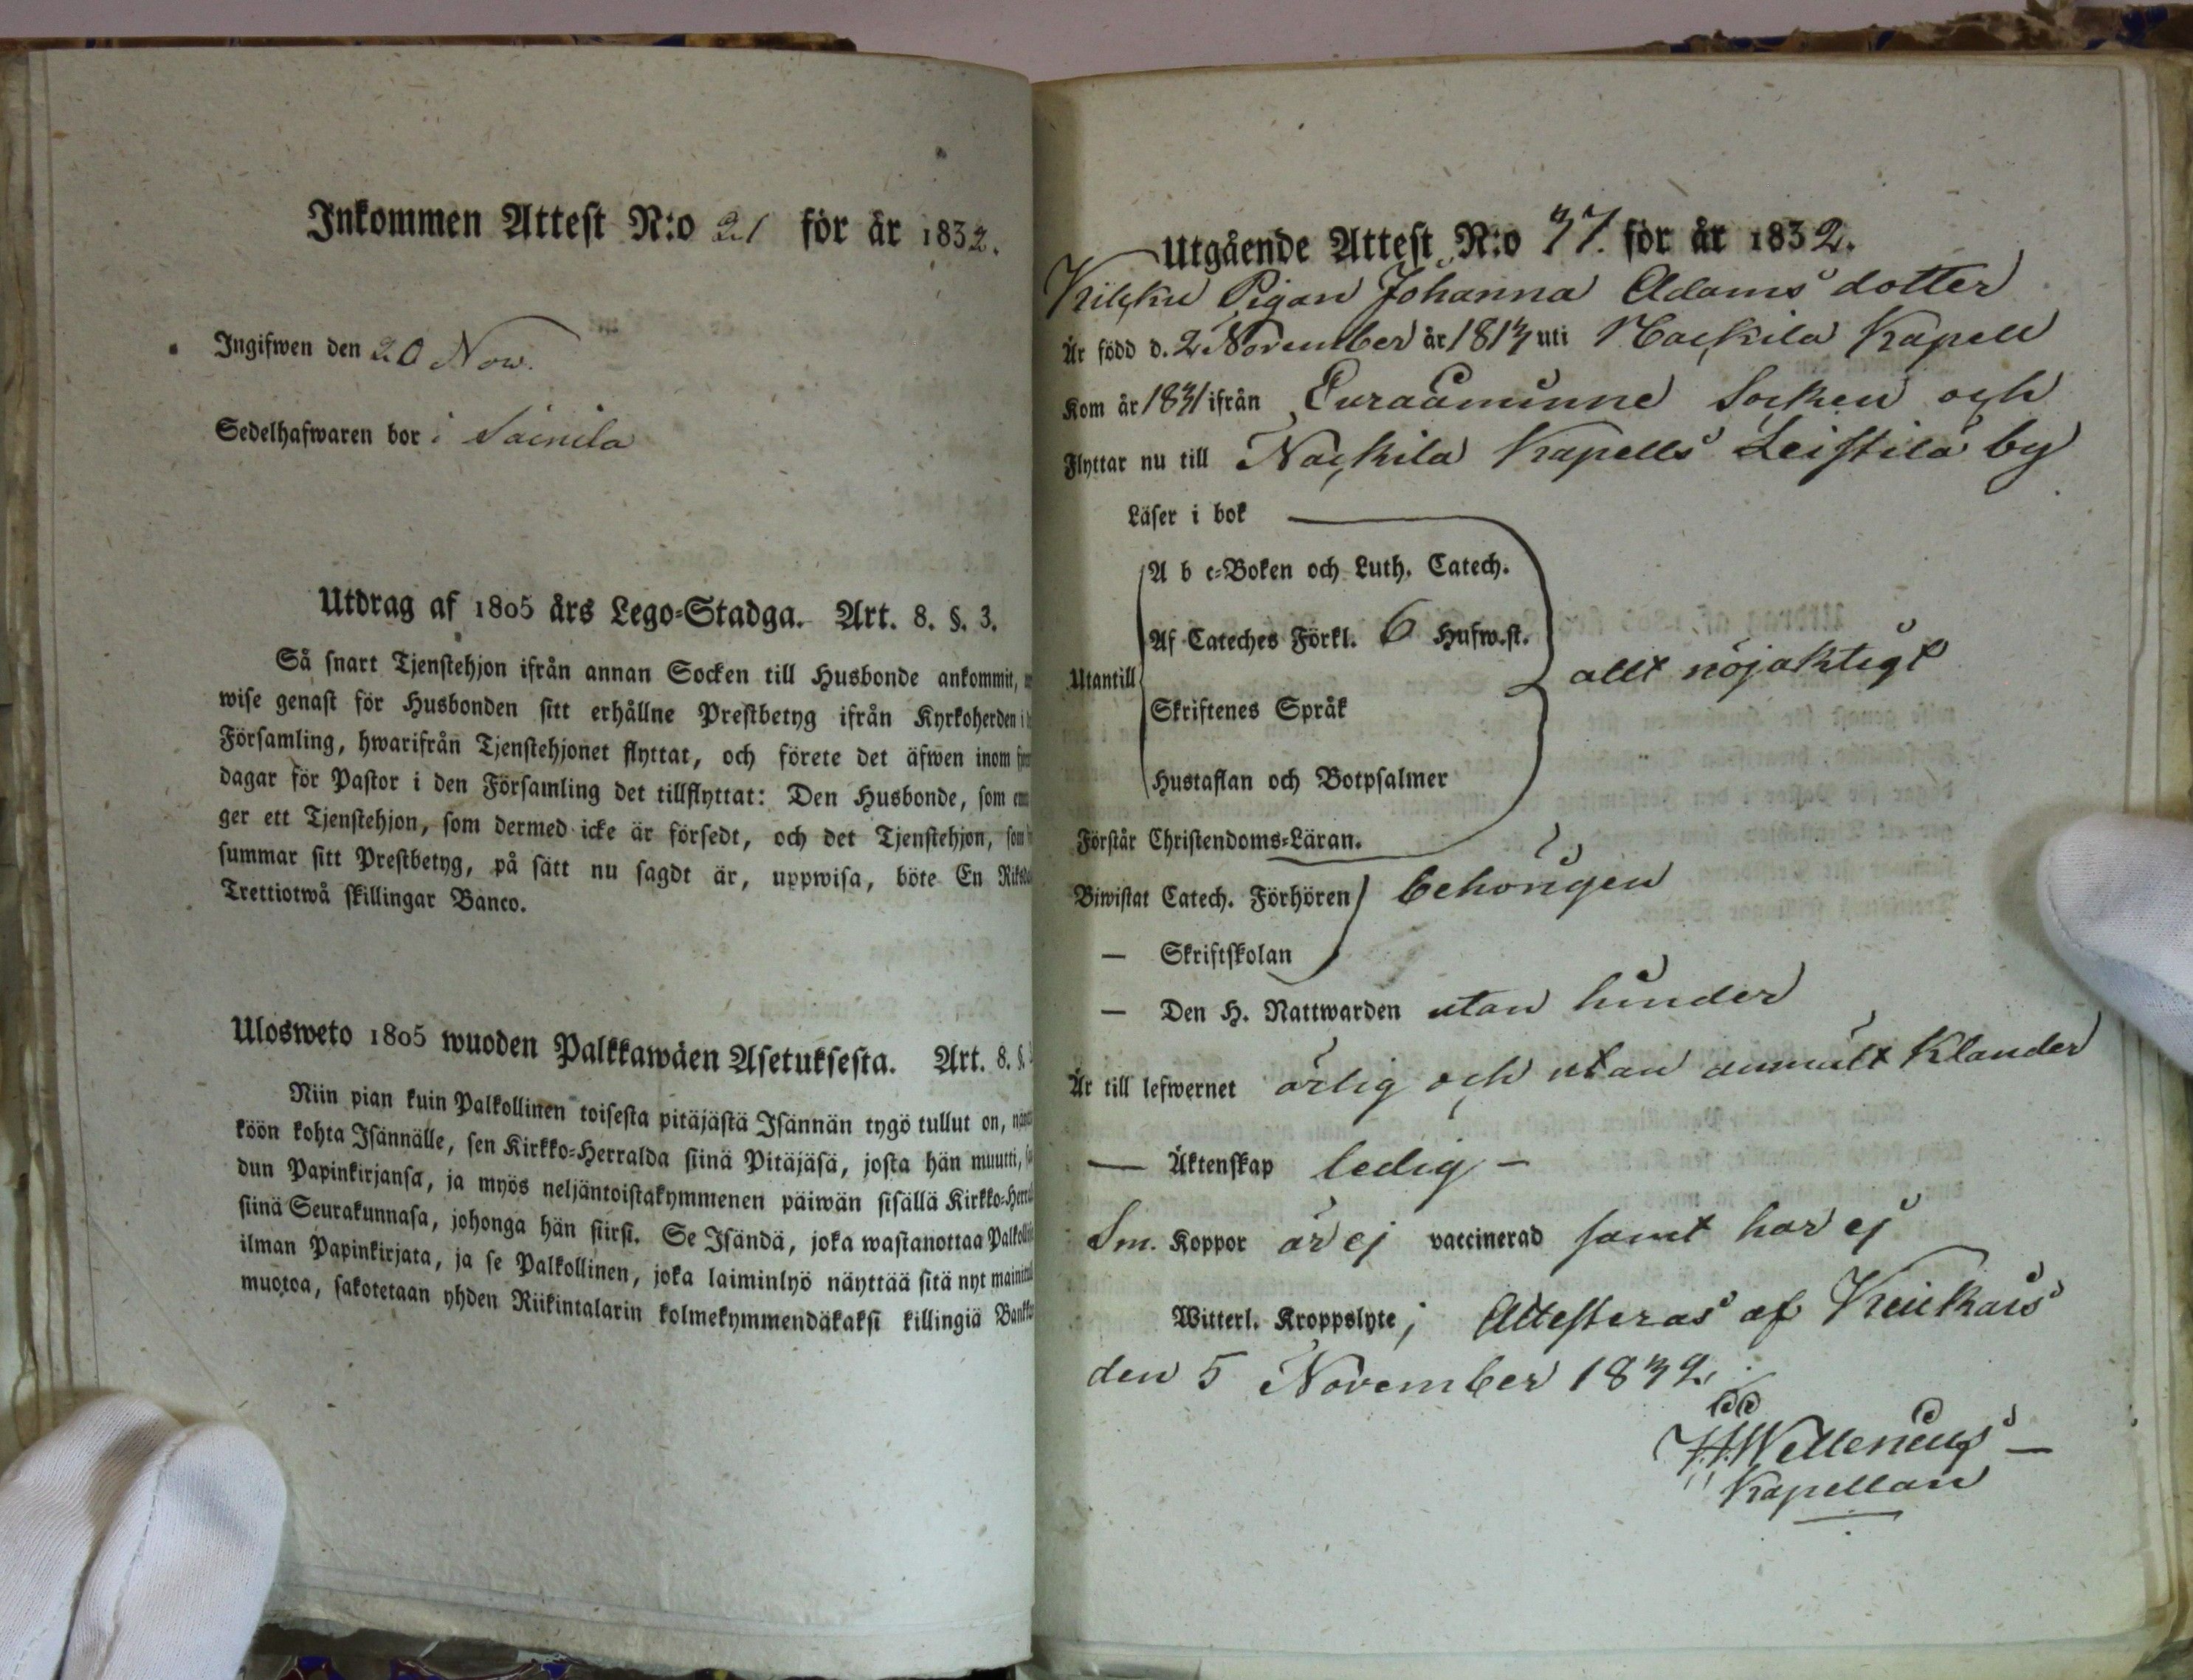 Inkommen Attest N:o 21 för år 1832.
Ingifwen den 20 Nov.
Sedelhafwaren bor i Sainila
Utdrag af 1805 års Lego-Stadga. Art. 8. §. 3.
Så snart Tjenstehjon ifrån annan Socken till Husbonde ankommit,
wise genast för Husbonden sitt erhållne Prestbetyg ifrån Kyrkoherden i
Församling, hwarifrån Tjenstehjonet flyttat, och förete det äfwen inom
dagar för Pastor i den Församling det tillflyttat: Den Husbonde, som
ger ett Tjenstehjon, som dermed icke är försedt, och det Tjenstehjon,
summar sitt Prestbetyg, på sätt nu sagdt är, uppwisa, böte En
Trettiotwå skillingar Banco.
Ulosweto 1805 wuoden Palkkawäen Asetuksesta. Art. 8. §.
Niin pian kuin Palkollinen toisesta pitäjästä Isännän tygö tullut on,
köön kohta Isännälle, sen Kirkko-Herralda siinä Pitäjäsä, josta hän muutti,
dun Papinkirjansa, ja myös neljäntoistakymmenen päiwän sisällä
siinä Seurakunnasa, johonga hän siirsi. Se Isändä, joka wastanottaa
ilman Papinkirjata, ja se Palkollinen, joka laiminlyö näyttää sitä nyt
muotoa, sakotetaan yhden Riikintalarin kolmekymmendäkaksi killingiä
Utgående Attest N:o 37. för år 1832.
Pigan Johanna Adams dotter
Är född d. 2 November år 1813 uti Nackila Kapell
Kom år 1831 ifrån Euraåminne Socken och
Flyttar nu till Nackila Kapells Leistila by
Läser i bok
A b c-Boken och Luth. Catech.
Af Cateches Förkl. 6 Hufw.st.
Utantill
allt nöjaktigt
Skriftenes Språk
Hustaflan och Botpsalmer
Förstår Christendoms-Läran.
Biwistat Catech. Förhören behörigen
— Skriftskolan
— Den H. Nattwarden utan hinder
Är till lefwernet ärlig och utan anmält Klander
— Äktenskap ledig –
Sm. Koppor är ej vaccinerad samt har ej
Witterl. Kroppslyte; Attesteras af Keikais
den 5 November 1832.
Kapellan